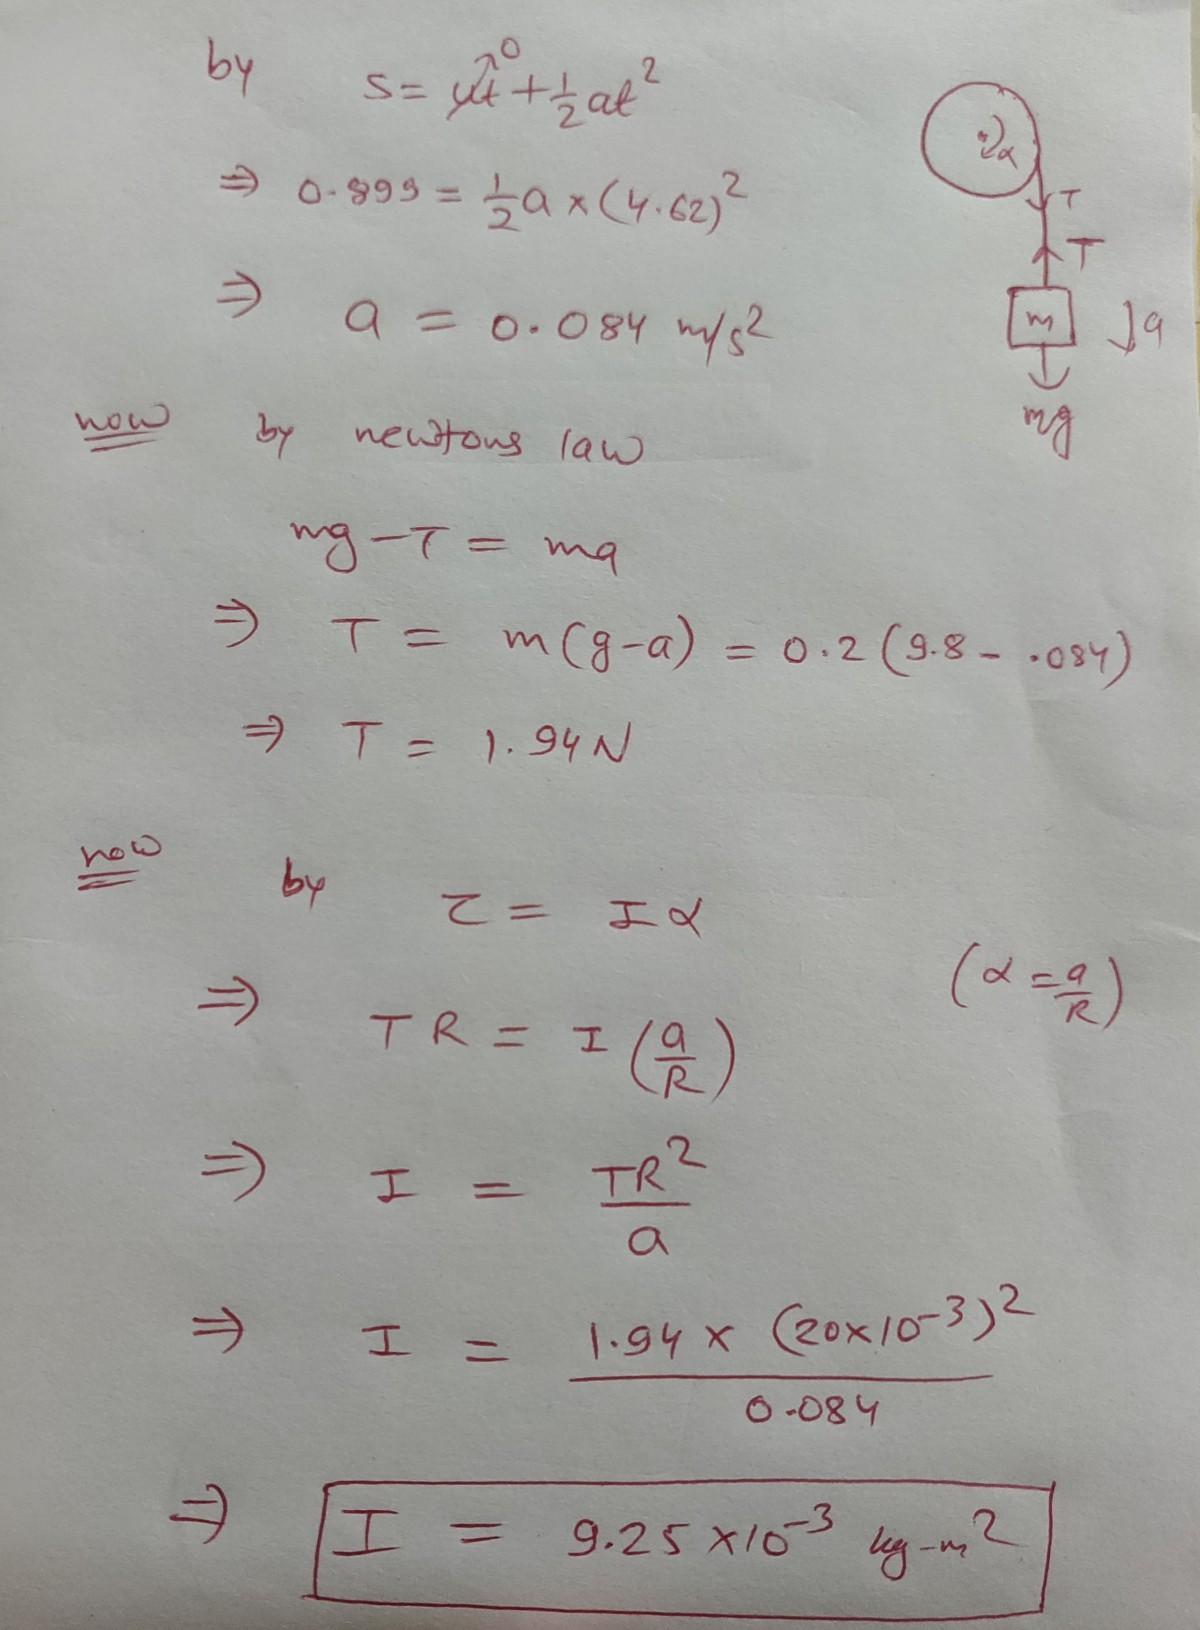 by s = ut↗0 + 1/2 at²
⇒ 0.899 = 1/2 a × (4.62)²
⇒ a = 0.084 m/s²
α
T
T
m
a
mg
now by newtons law
mg - T = ma
⇒ T = m(g-a) = 0.2 (9.8 - .084)
⇒ T = 1.94 N
now by τ = Iα
(α = a/R)
⇒ TR = I (a/R)
⇒ I = TR²/a
⇒ I = 1.94 × (20×10⁻³)²/0.084
⇒ I = 9.25 × 10⁻³ kg-m²